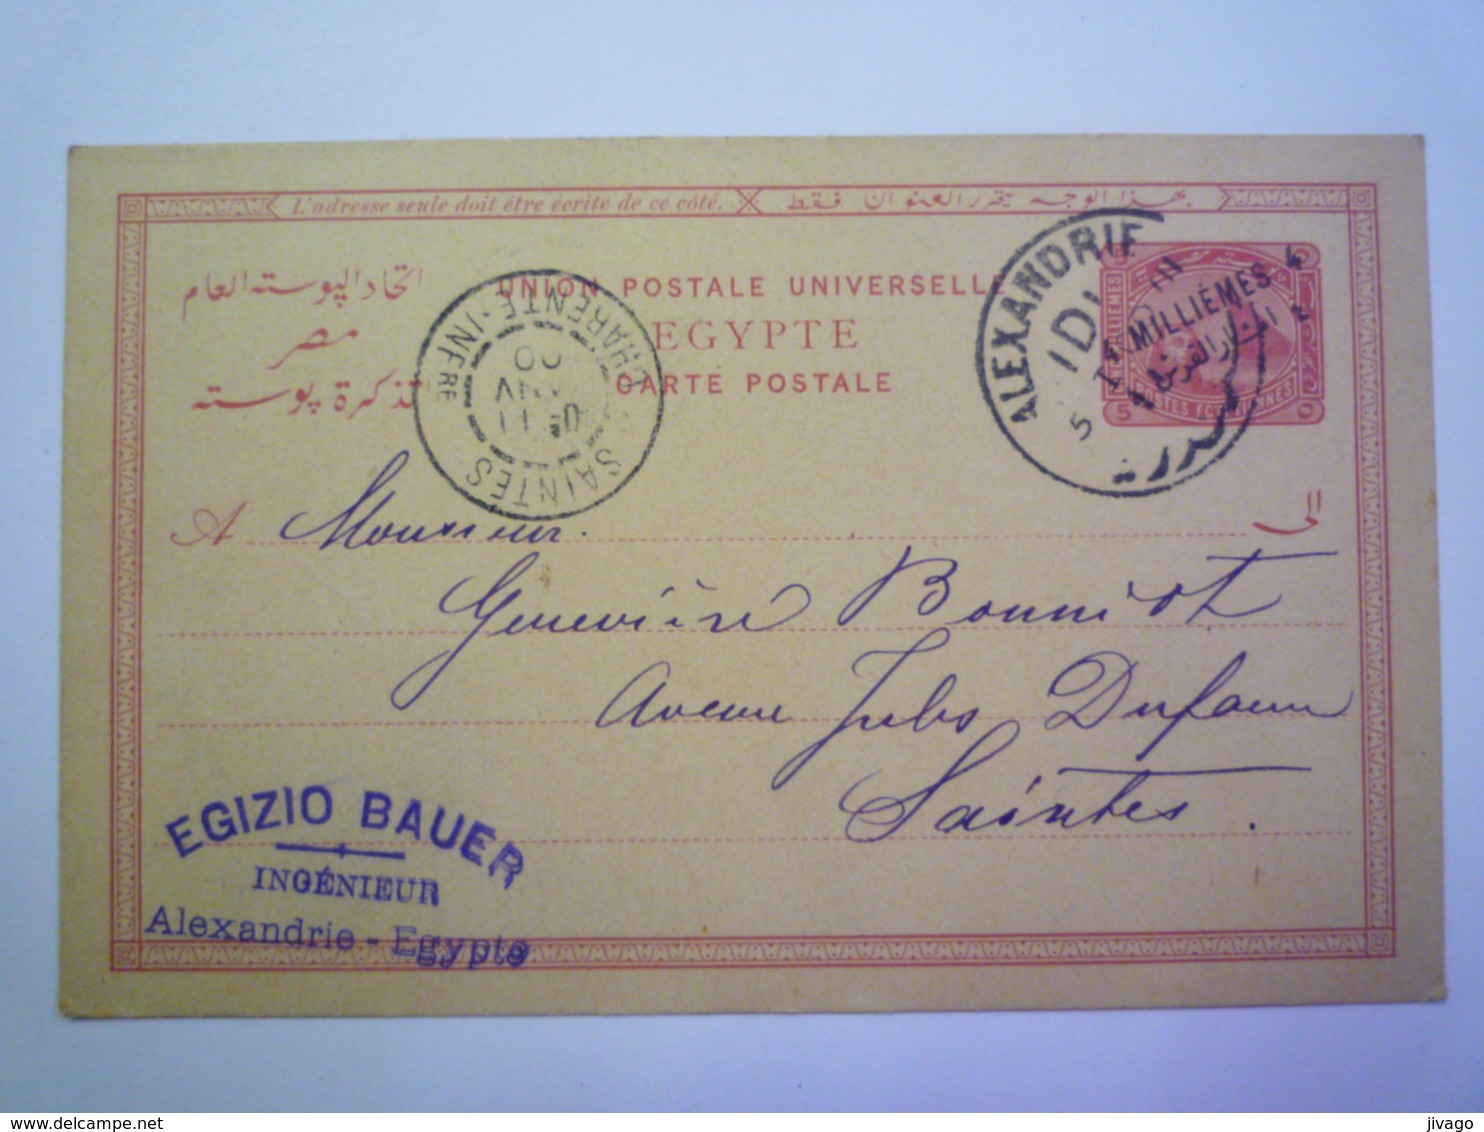 L'adresse seule doit être écrite de ce côté. بهذا الوجه يحرر العنوان فقط
اتحاد البوسته العام
مصر
تذكرة بوسته
UNION POSTALE UNIVERSELLE
EGYPTE
CARTE POSTALE
SAINTES
CHARENTE-INFRE
ALEXANDRIE
4 MILLIÈMES 4
5
A Monsieur. الى
Geneviève Bonniot
Avenue Jules Dufaure
Saintes.
EGIZIO BAUER
INGÉNIEUR
Alexandrie - Egypte
delcampe.net
jivago